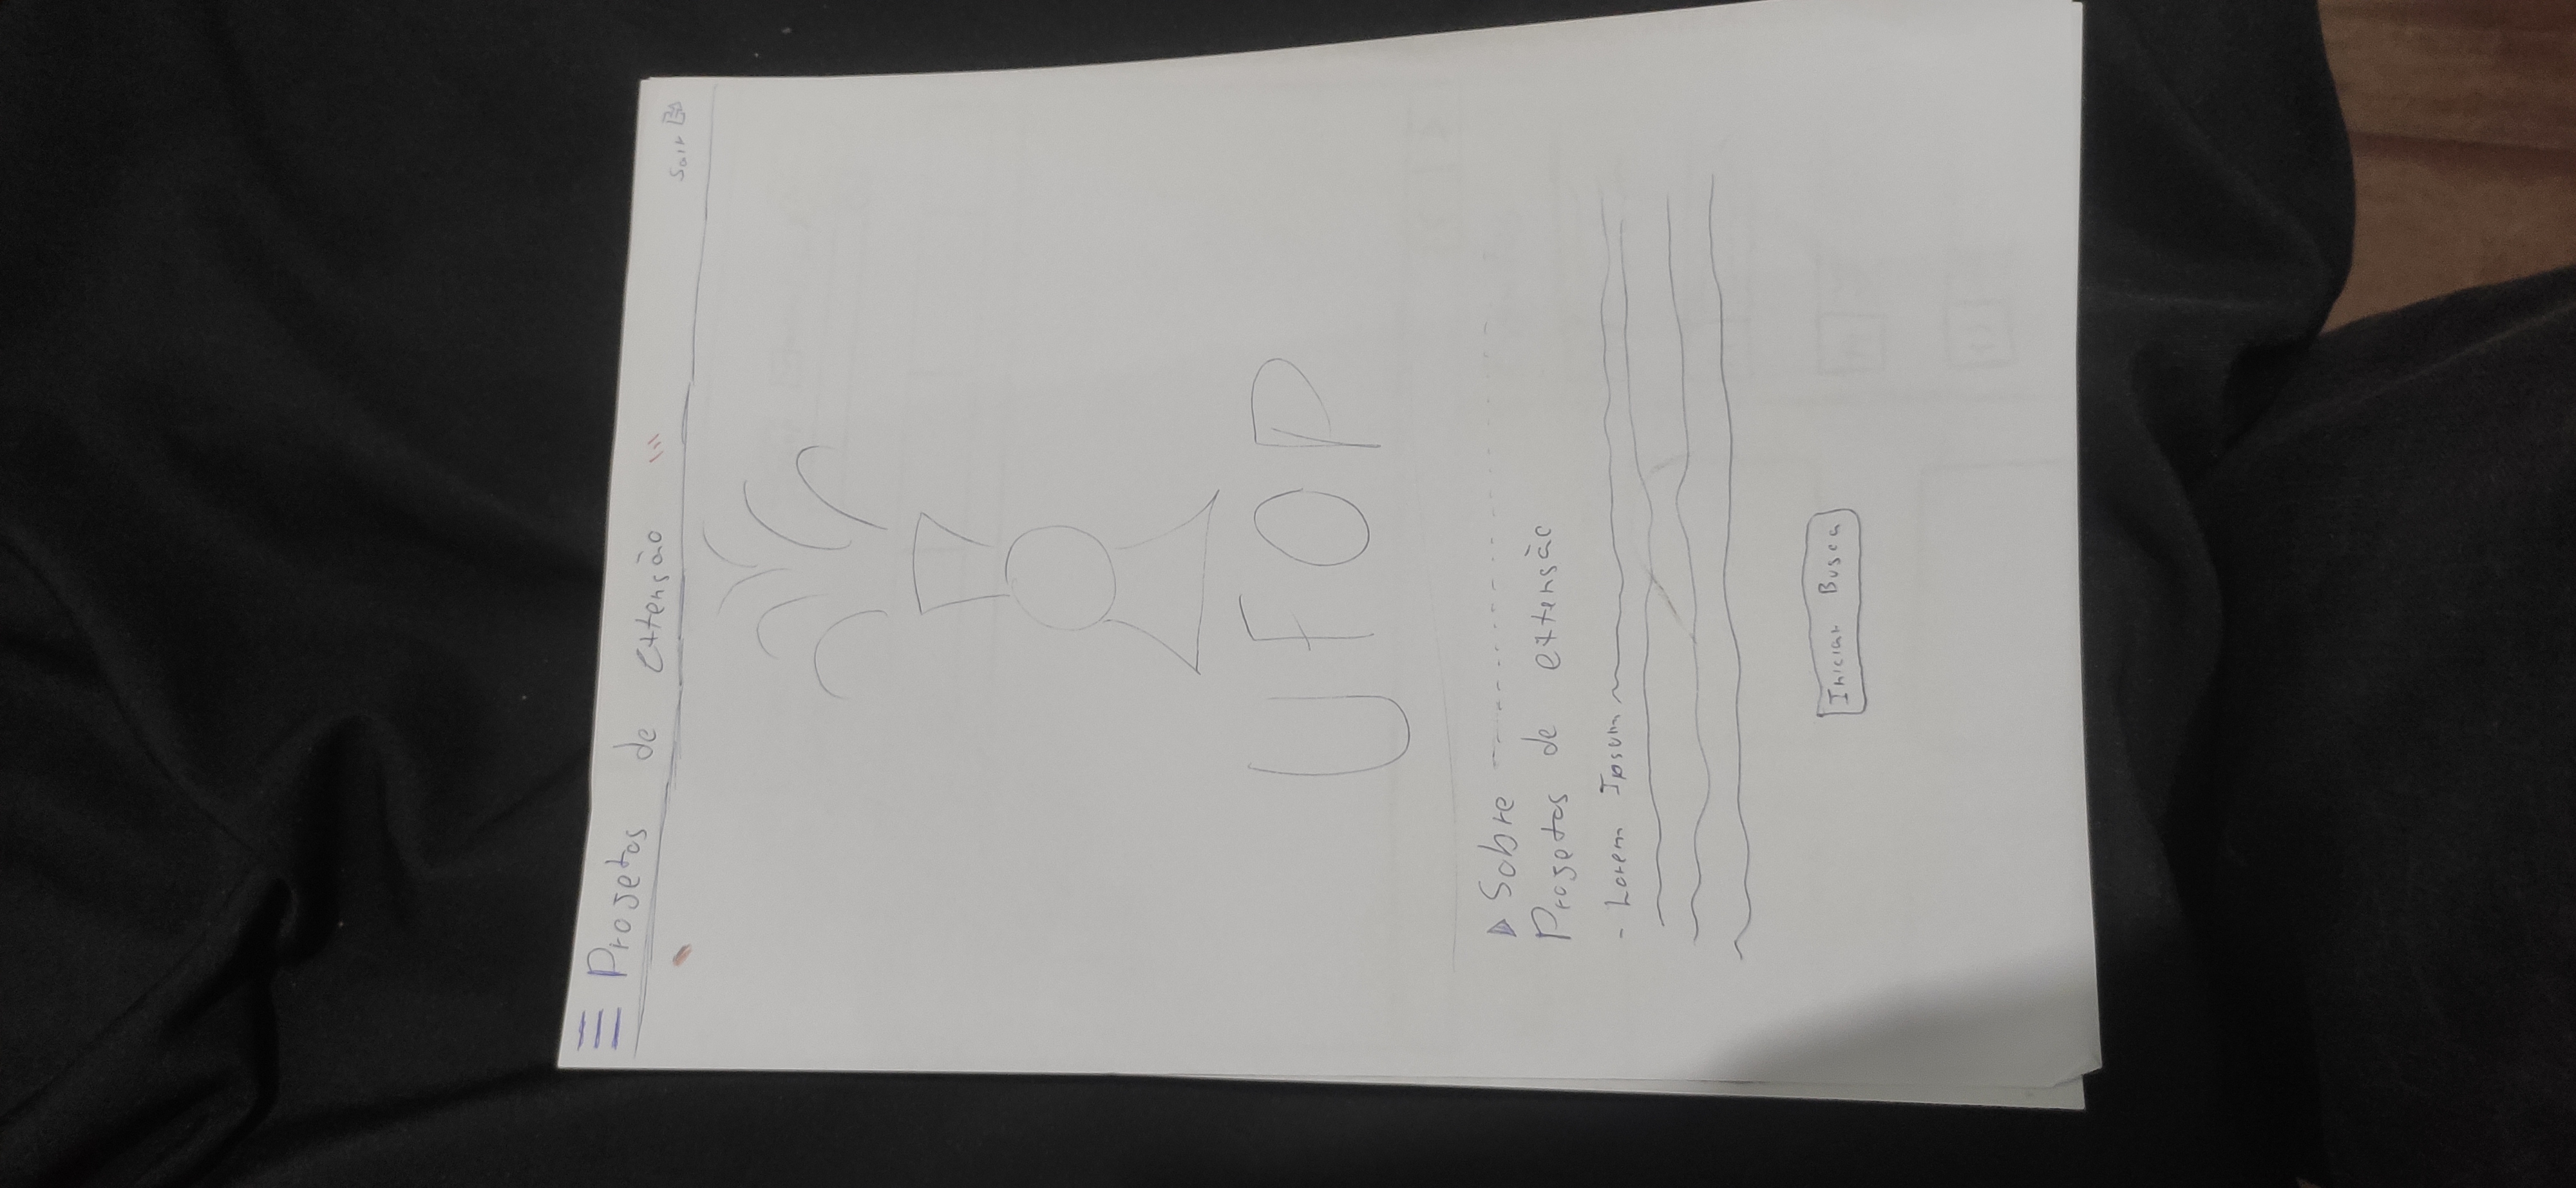 Projetos de extensão
Sair
UFOP
Sobre
Projetos de extensão
- Lorem Ipsum
Iniciar Busca